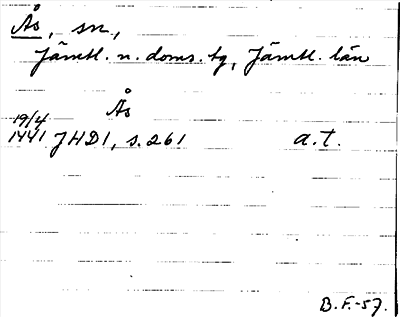 Ås, sn,
Jämtl. n. doms. tg, Jämtl. län
Ås
19/4
1441 JHD1, s. 261 a.t.
B.F.-57.